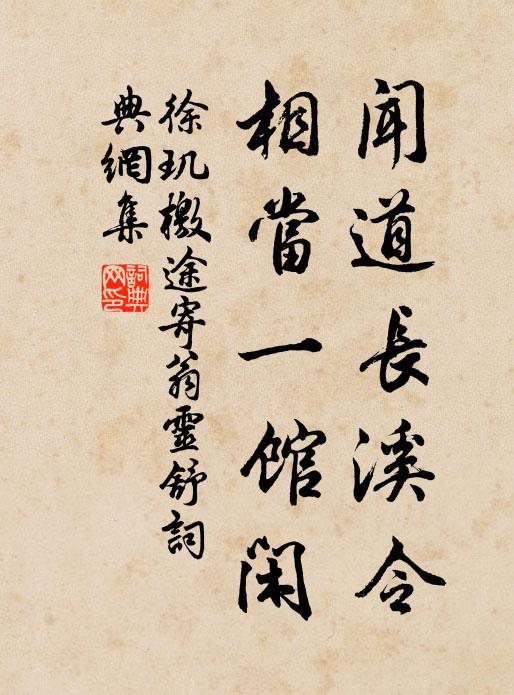 闻道長溪令
相當一館閑
徐玑檄途寄翁靈舒詞
典網集
詞典
网印